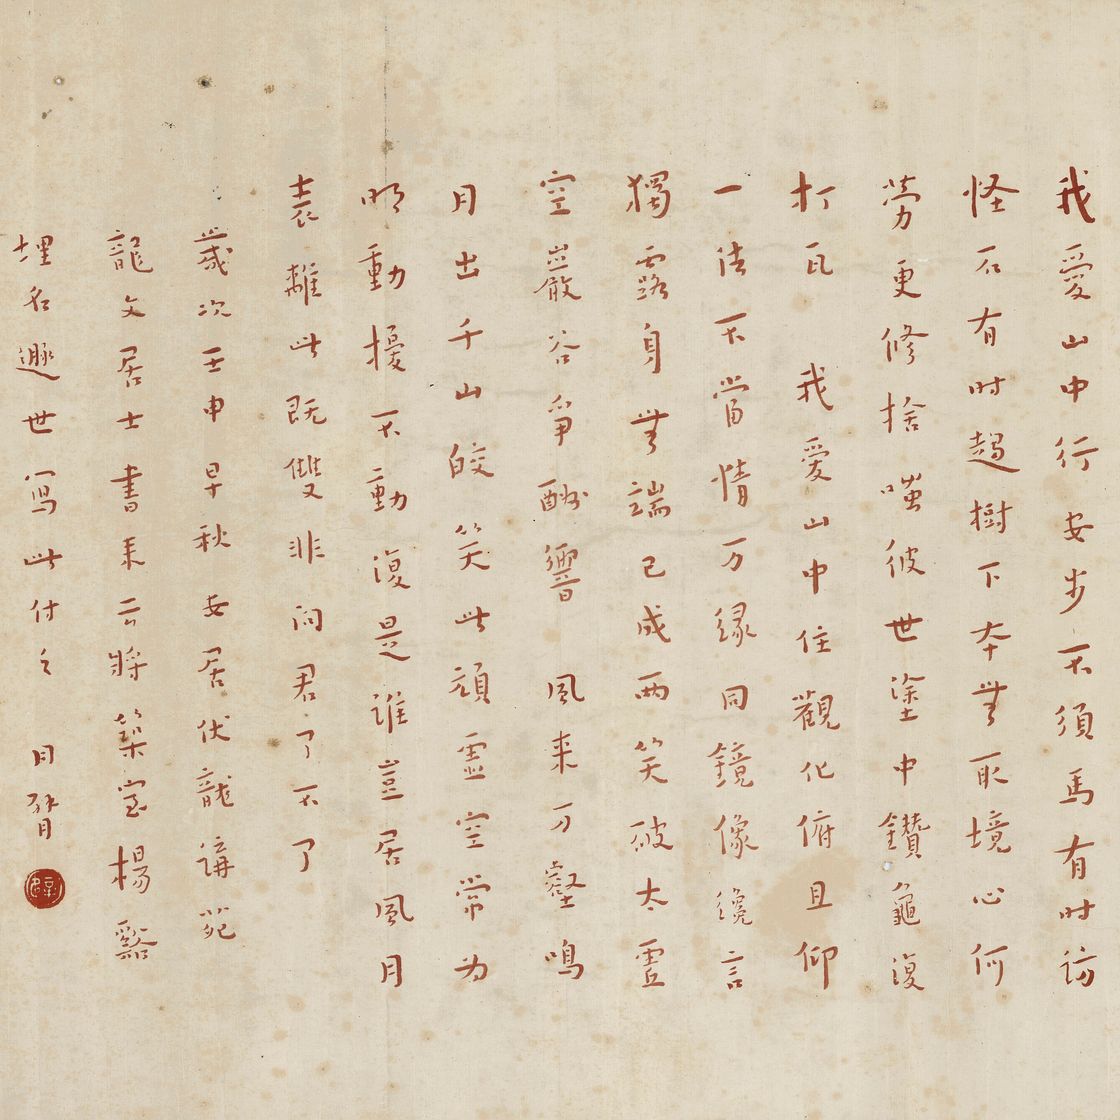 我愛山中行安步不須馬有時訪
怪石有时超樹下本無取境心何
勞更修捨嗤彼世塗中鑽龜復
打瓦 我愛山中住觀化俯且仰
一法不當情万緣同鏡像纔言
獨露身無端已成兩笑破太虛
空巖谷爭酬響 風来万壑鳴
月出千山皎笑此頑虛空常为
明動擾不動復是誰豈居風月
表離此既雙非问君了不了
歲次壬申早秋安居伏龍講苑
龍文居士書来云將築室楊谿
埋名遯世寫此付之 月臂